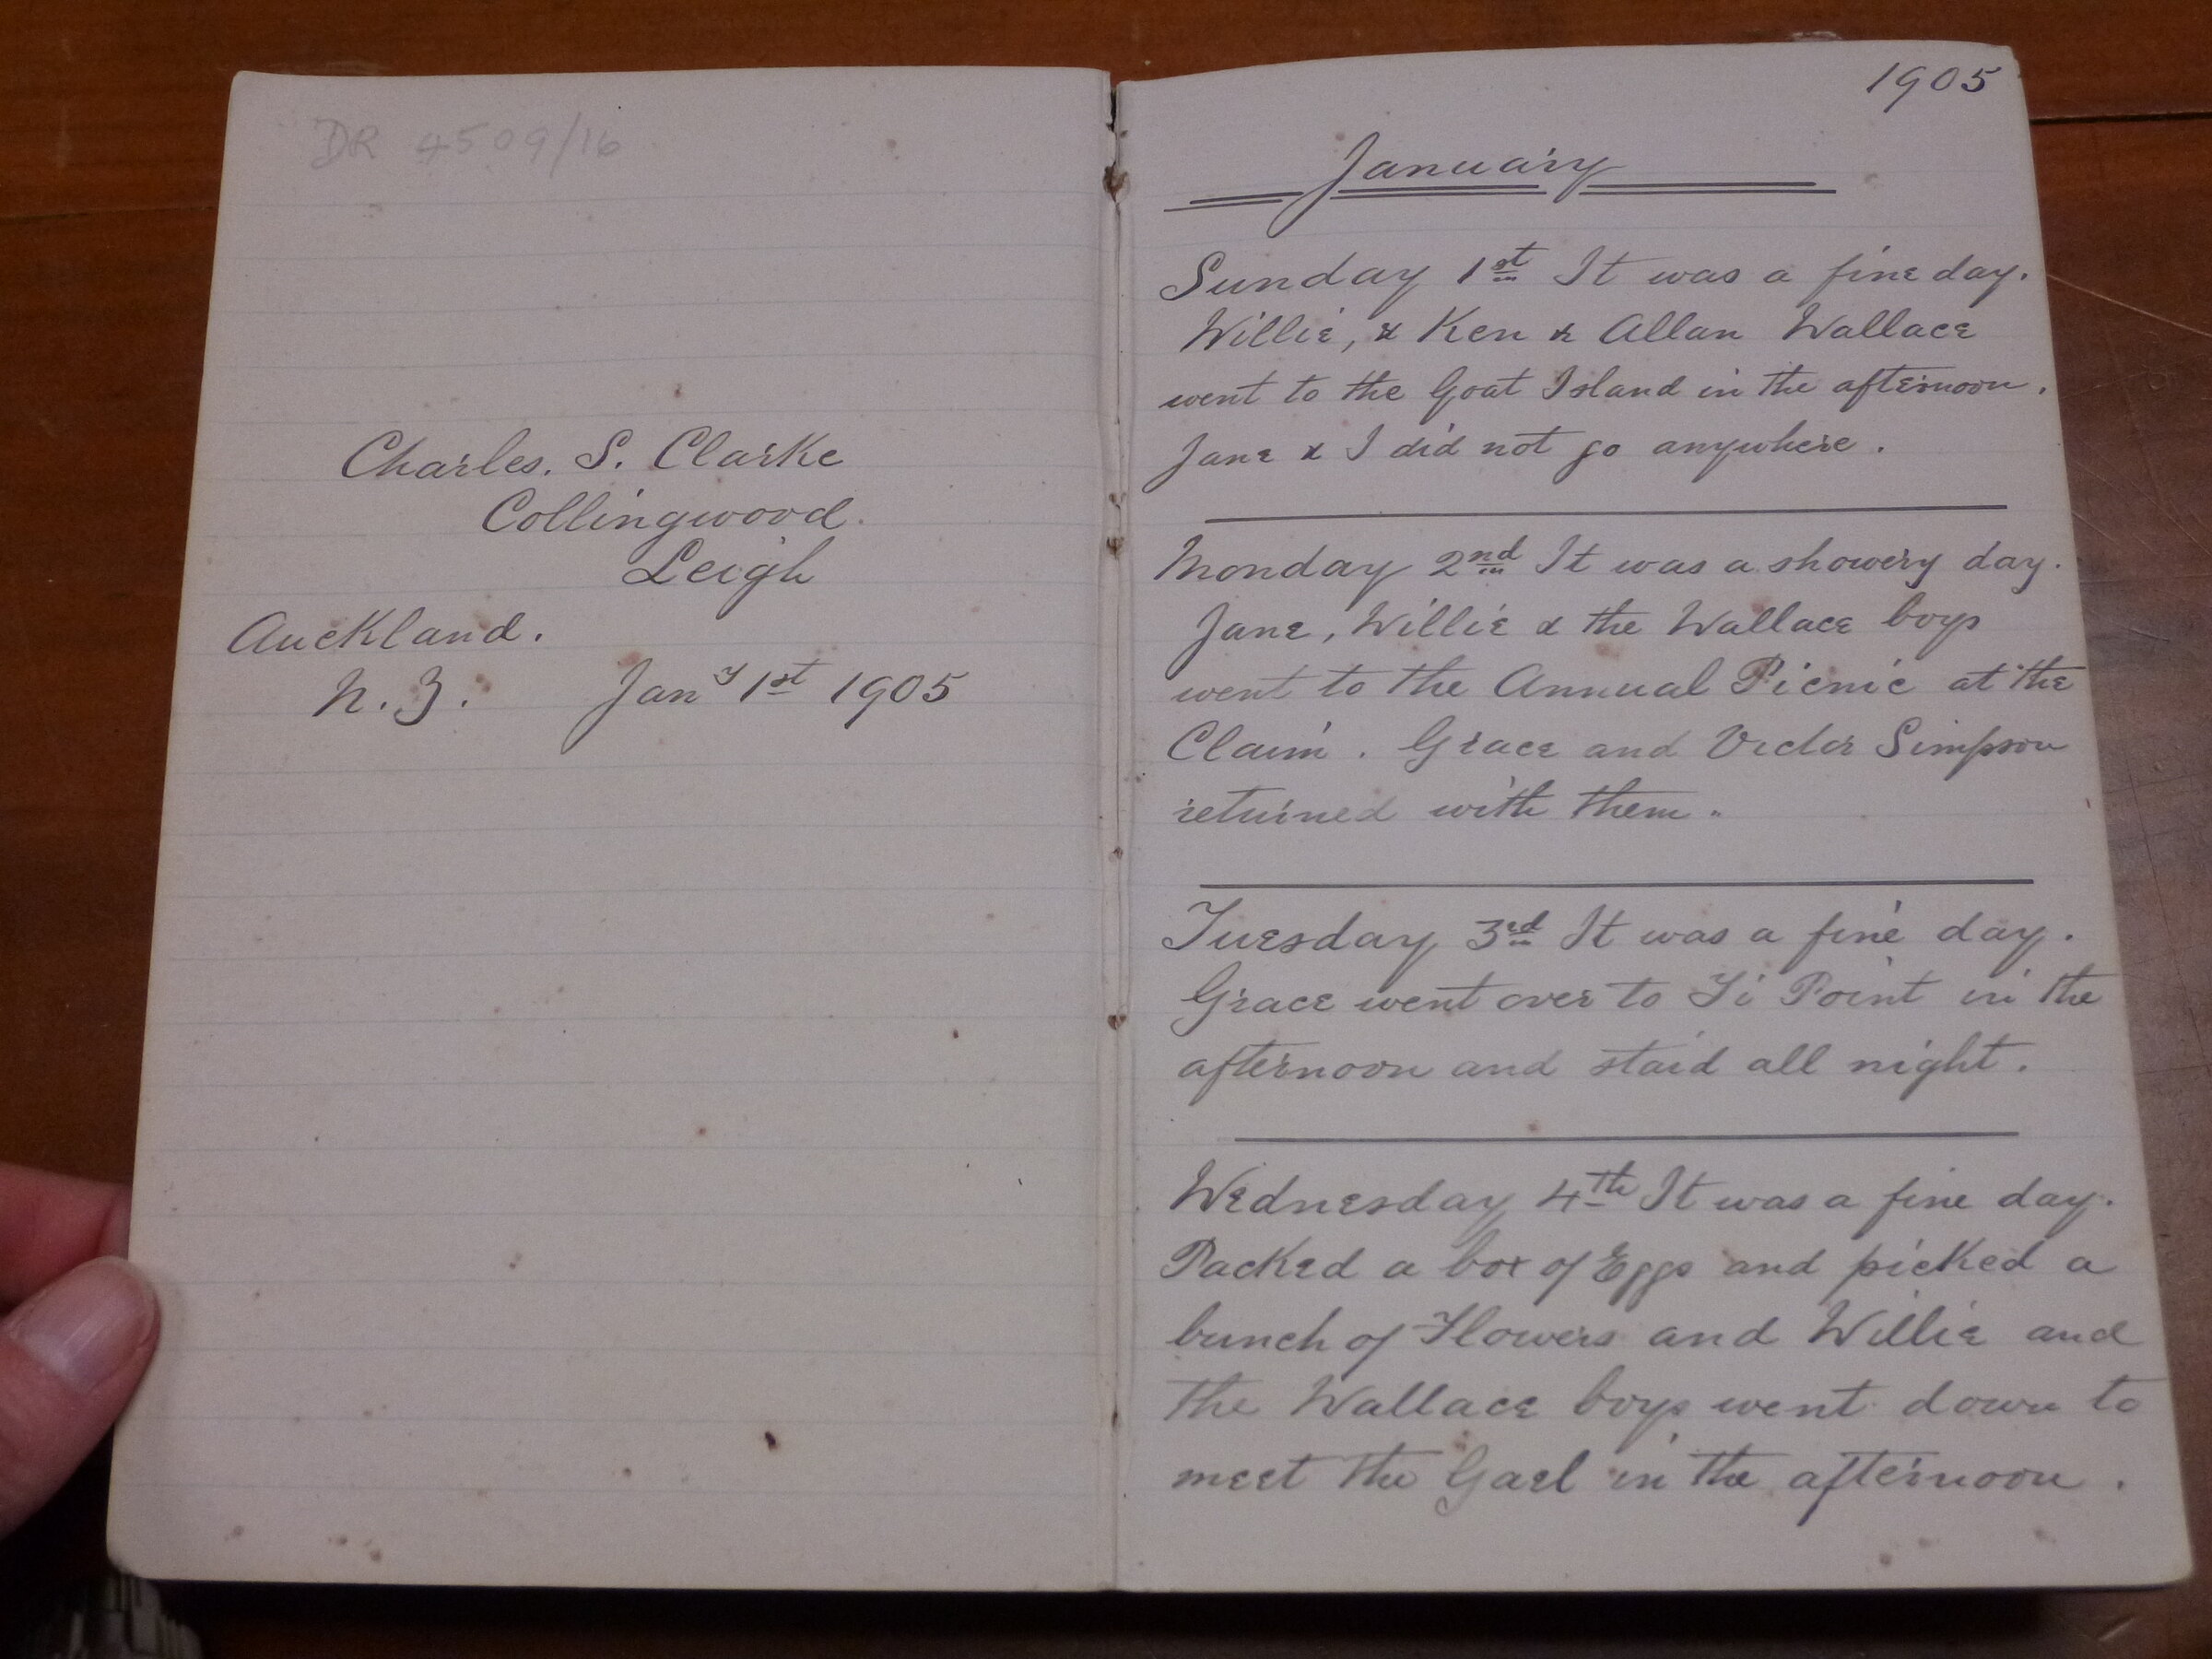 DR 4509/16
Charles. S. Clarke
Collingwood.
Leigh
Auckland.
N. Z. Jany 1st 1905
1905
January
Sunday 1st It was a fine day.
Willie, & Ken & Allan Wallace
went to the Goat Island in the afternoon.
Jane & I did not go anywhere.
Monday 2nd It was a showery day.
Jane, Willie & the Wallace boys
went to the Annual Picnic at the
Claim. Grace and Victor Simpson
returned with them.
Tuesday 3rd It was a fine day.
Grace went over to Ti Point in the
afternoon and staid all night.
Wednesday 4th It was a fine day.
Packed a box of Eggs and picked a
bunch of Flowers and Willie and
the Wallace boys went down to
meet the Gael in the afternoon.